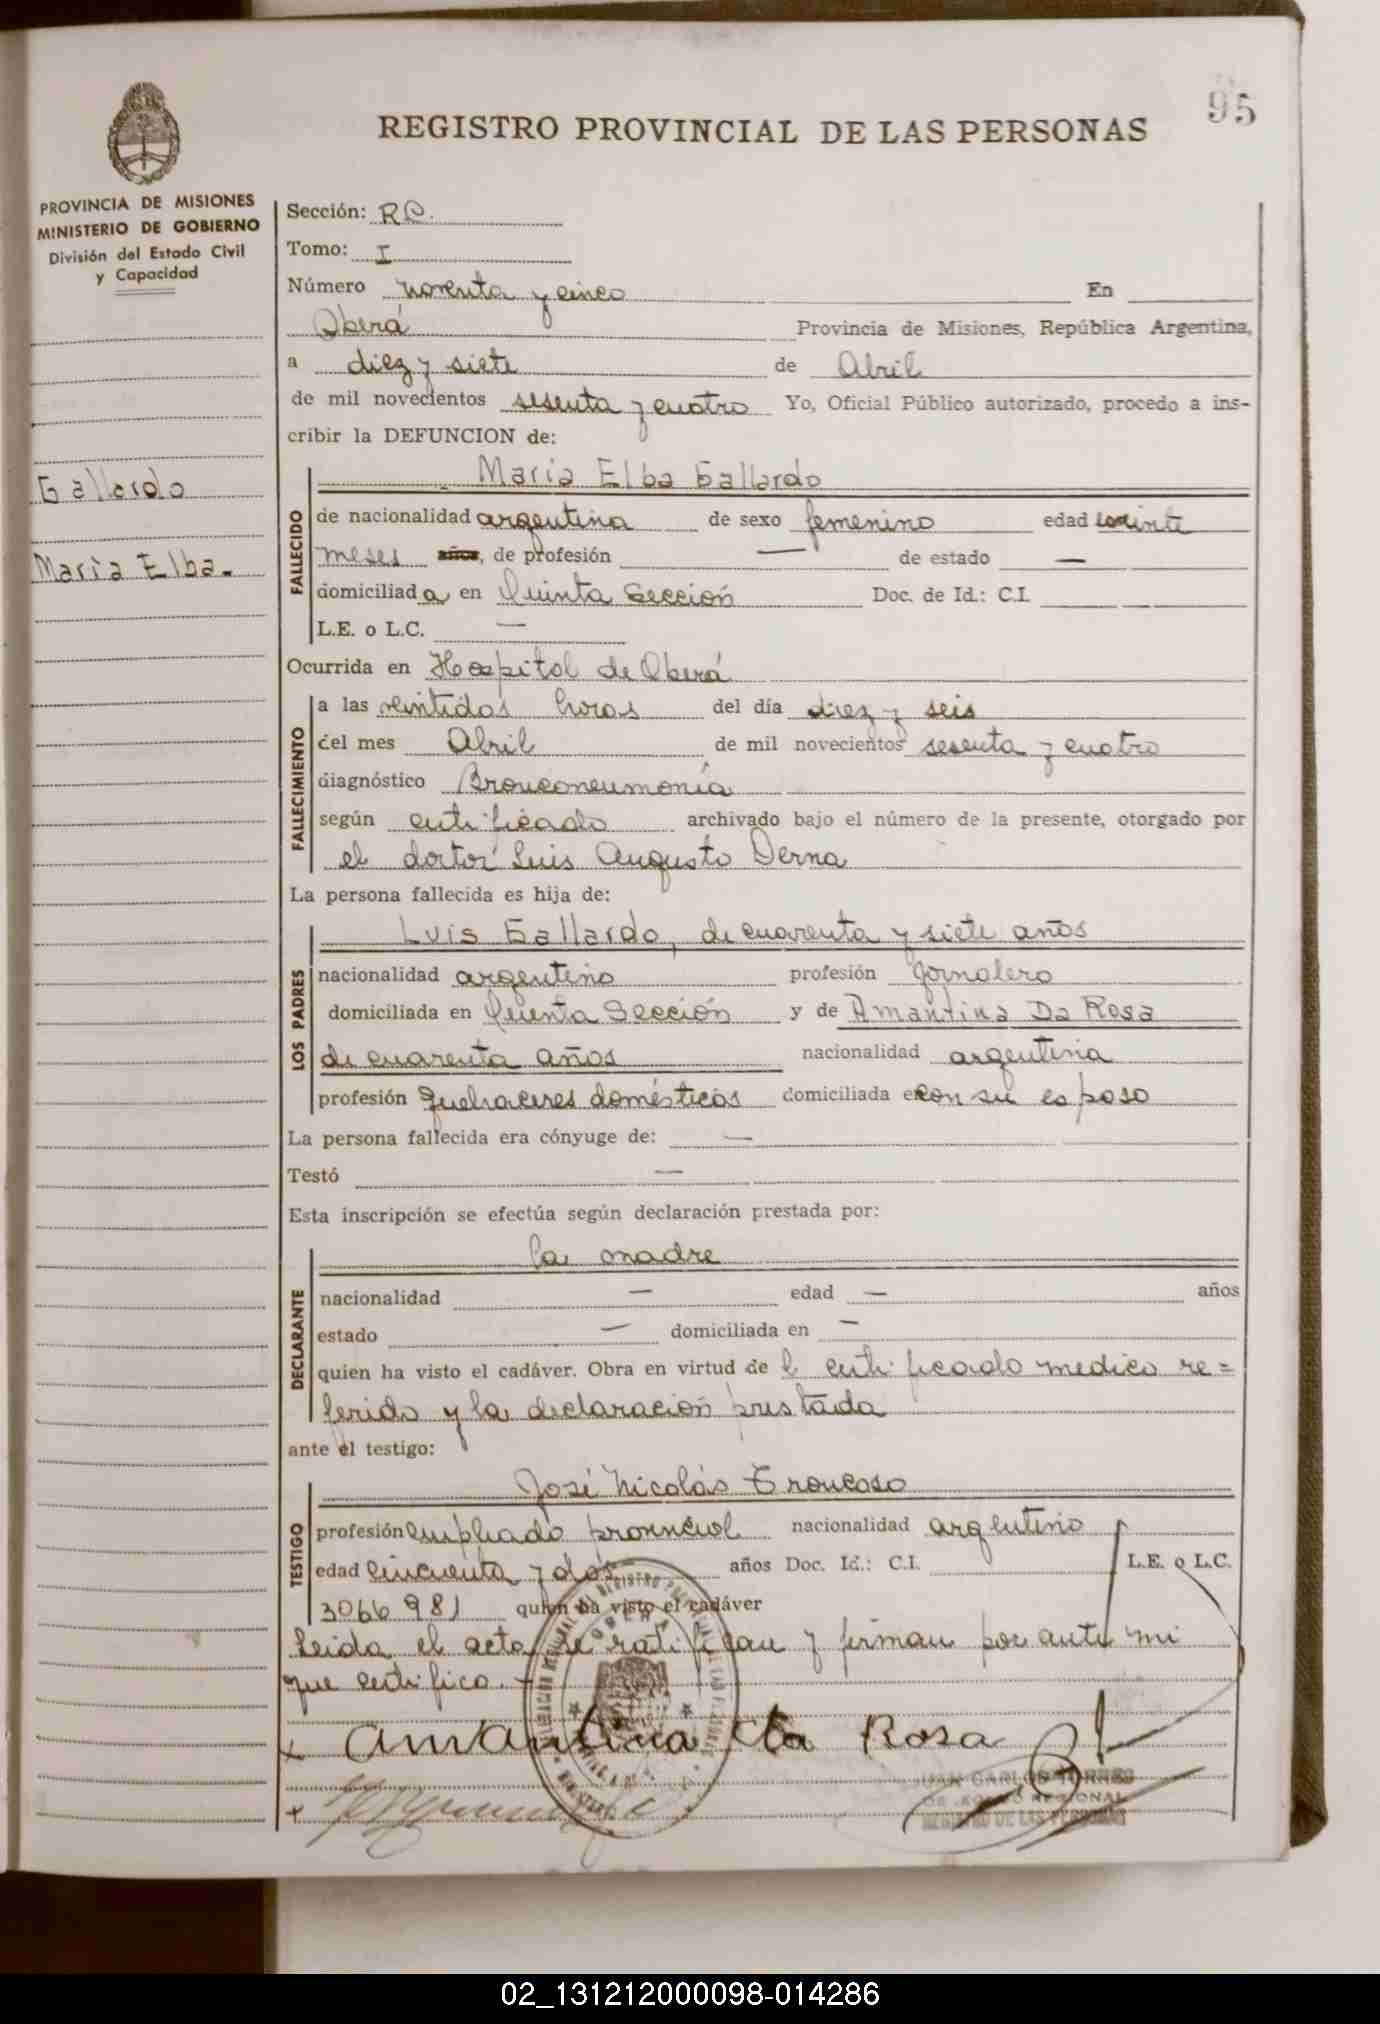 95
REGISTRO PROVINCIAL DE LAS PERSONAS
PROVINCIA DE MISIONES
MINISTERIO DE GOBIERNO
División del Estado Civil
y Capacidad
Gallardo
María Elba.
Sección: RC.
Tomo: I
Número noventa y cinco En
Oberá Provincia de Misiones, República Argentina,
a diez y siete de Abril
de mil novecientos sesenta y cuatro Yo, Oficial Público autorizado, procedo a ins-
cribir la DEFUNCION de:
María Elba Gallardo
FALLECIDO
de nacionalidad argentina de sexo femenino edad veinte
meses años, de profesión — de estado —
domiciliada en Quinta Sección Doc. de Id.: C.I.
L.E. o L.C. —
Ocurrida en Hospital de Oberá
FALLECIMIENTO
a las veintidos horas del día diez y seis
del mes Abril de mil novecientos sesenta y cuatro
diagnóstico Bronconeumonía
según certificado archivado bajo el número de la presente, otorgado por
el doctor Luis Augusto Derna
La persona fallecida es hija de:
LOS PADRES
Luis Gallardo, de cuarenta y siete años
nacionalidad argentino profesión Jornalero
domiciliada en Quinta Sección y de Amantina Da Rosa
de cuarenta años nacionalidad argentina
profesión Quehaceres domésticos domiciliada e con su esposo
La persona fallecida era cónyuge de: —
Testó —
Esta inscripción se efectúa según declaración prestada por:
DECLARANTE
la madre
nacionalidad — edad — años
estado — domiciliada en —
quien ha visto el cadáver. Obra en virtud de l certificado medico re=
ferido y la declaración prestada
ante el testigo:
TESTIGO
José Nicolás Troncoso
profesión empleado provincial nacionalidad argentino
edad cincuenta y dos años Doc. Id.: C.I. L.E. o L.C.
3066981 quien ha visto el cadáver
Leida el acta se ratifican y firman por ante mi
que certifico.-
x Amantina da Rosa
JUAN CARLOS TORRES
REGIONAL
REGISTRO DE LAS PERSONAS
02_131212000098-014286